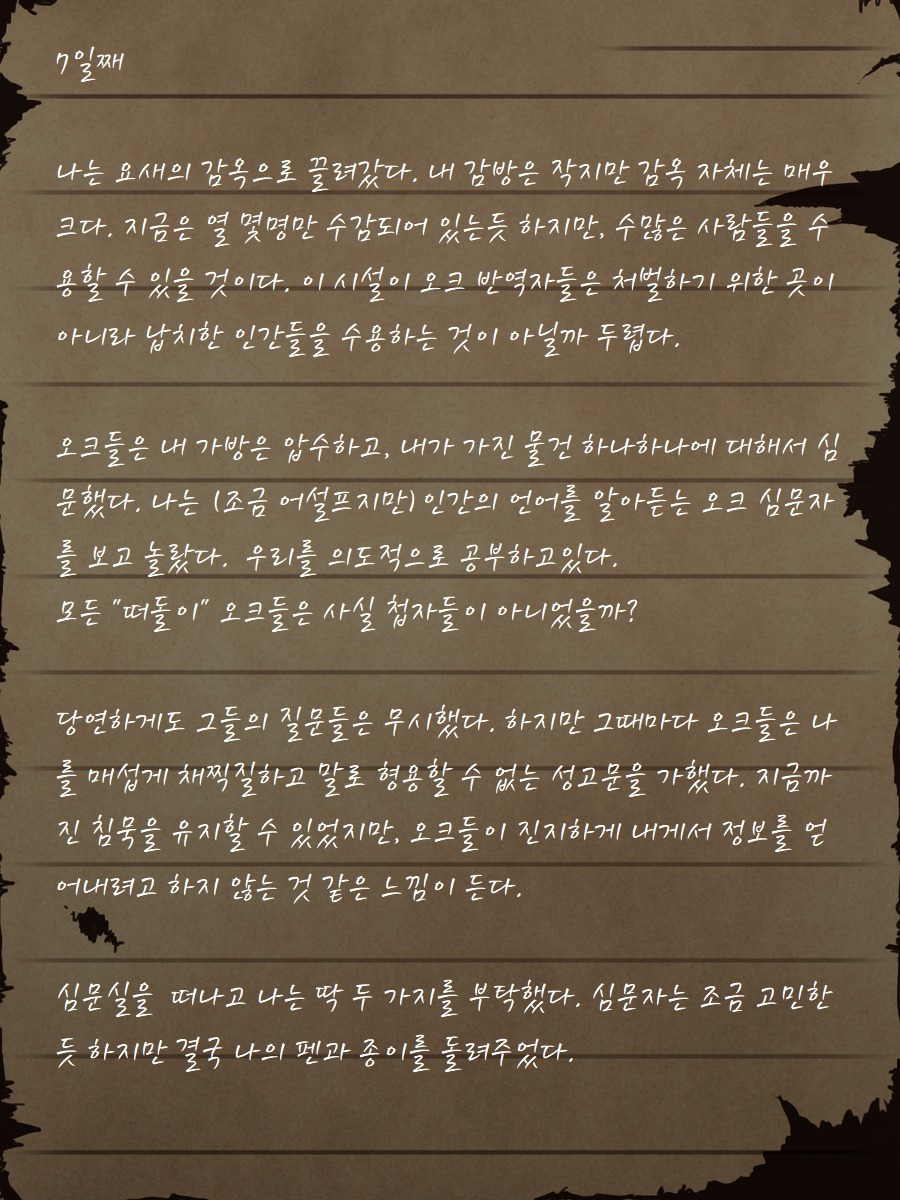 7일째
나는 요새의 감옥으로 끌려갔다. 내 감방은 작지만 감옥 자체는 매우
크다. 지금은 열 몇명만 수감되어 있는듯 하지만, 수많은 사람들을 수
용할 수 있을 것이다. 이 시설이 오크 반역자들은 처벌하기 위한 곳이
아니라 납치한 인간들을 수용하는 것이 아닐까 두렵다.
오크들은 내 가방은 압수하고, 내가 가진 물건 하나하나에 대해서 심
문했다. 나는 (조금 어설프지만) 인간의 언어를 알아듣는 오크 심문자
를 보고 놀랐다. 우리를 의도적으로 공부하고있다.
모든 "떠돌이" 오크들은 사실 첩자들이 아니었을까?
당연하게도 그들의 질문들은 무시했다. 하지만 그때마다 오크들은 나
를 매섭게 채찍질하고 말로 형용할 수 없는 성고문을 가했다. 지금까
진 침묵을 유지할 수 있었지만, 오크들이 진지하게 내게서 정보를 얻
어내려고 하지 않는 것 같은 느낌이 든다.
심문실을 떠나고 나는 딱 두 가지를 부탁했다. 심문자는 조금 고민한
듯 하지만 결국 나의 펜과 종이를 돌려주었다.